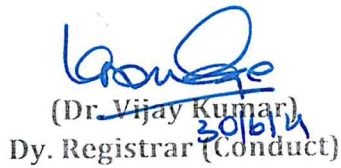 (Dr. Vijay Kumar)
Dy. Registrar (Conduct)